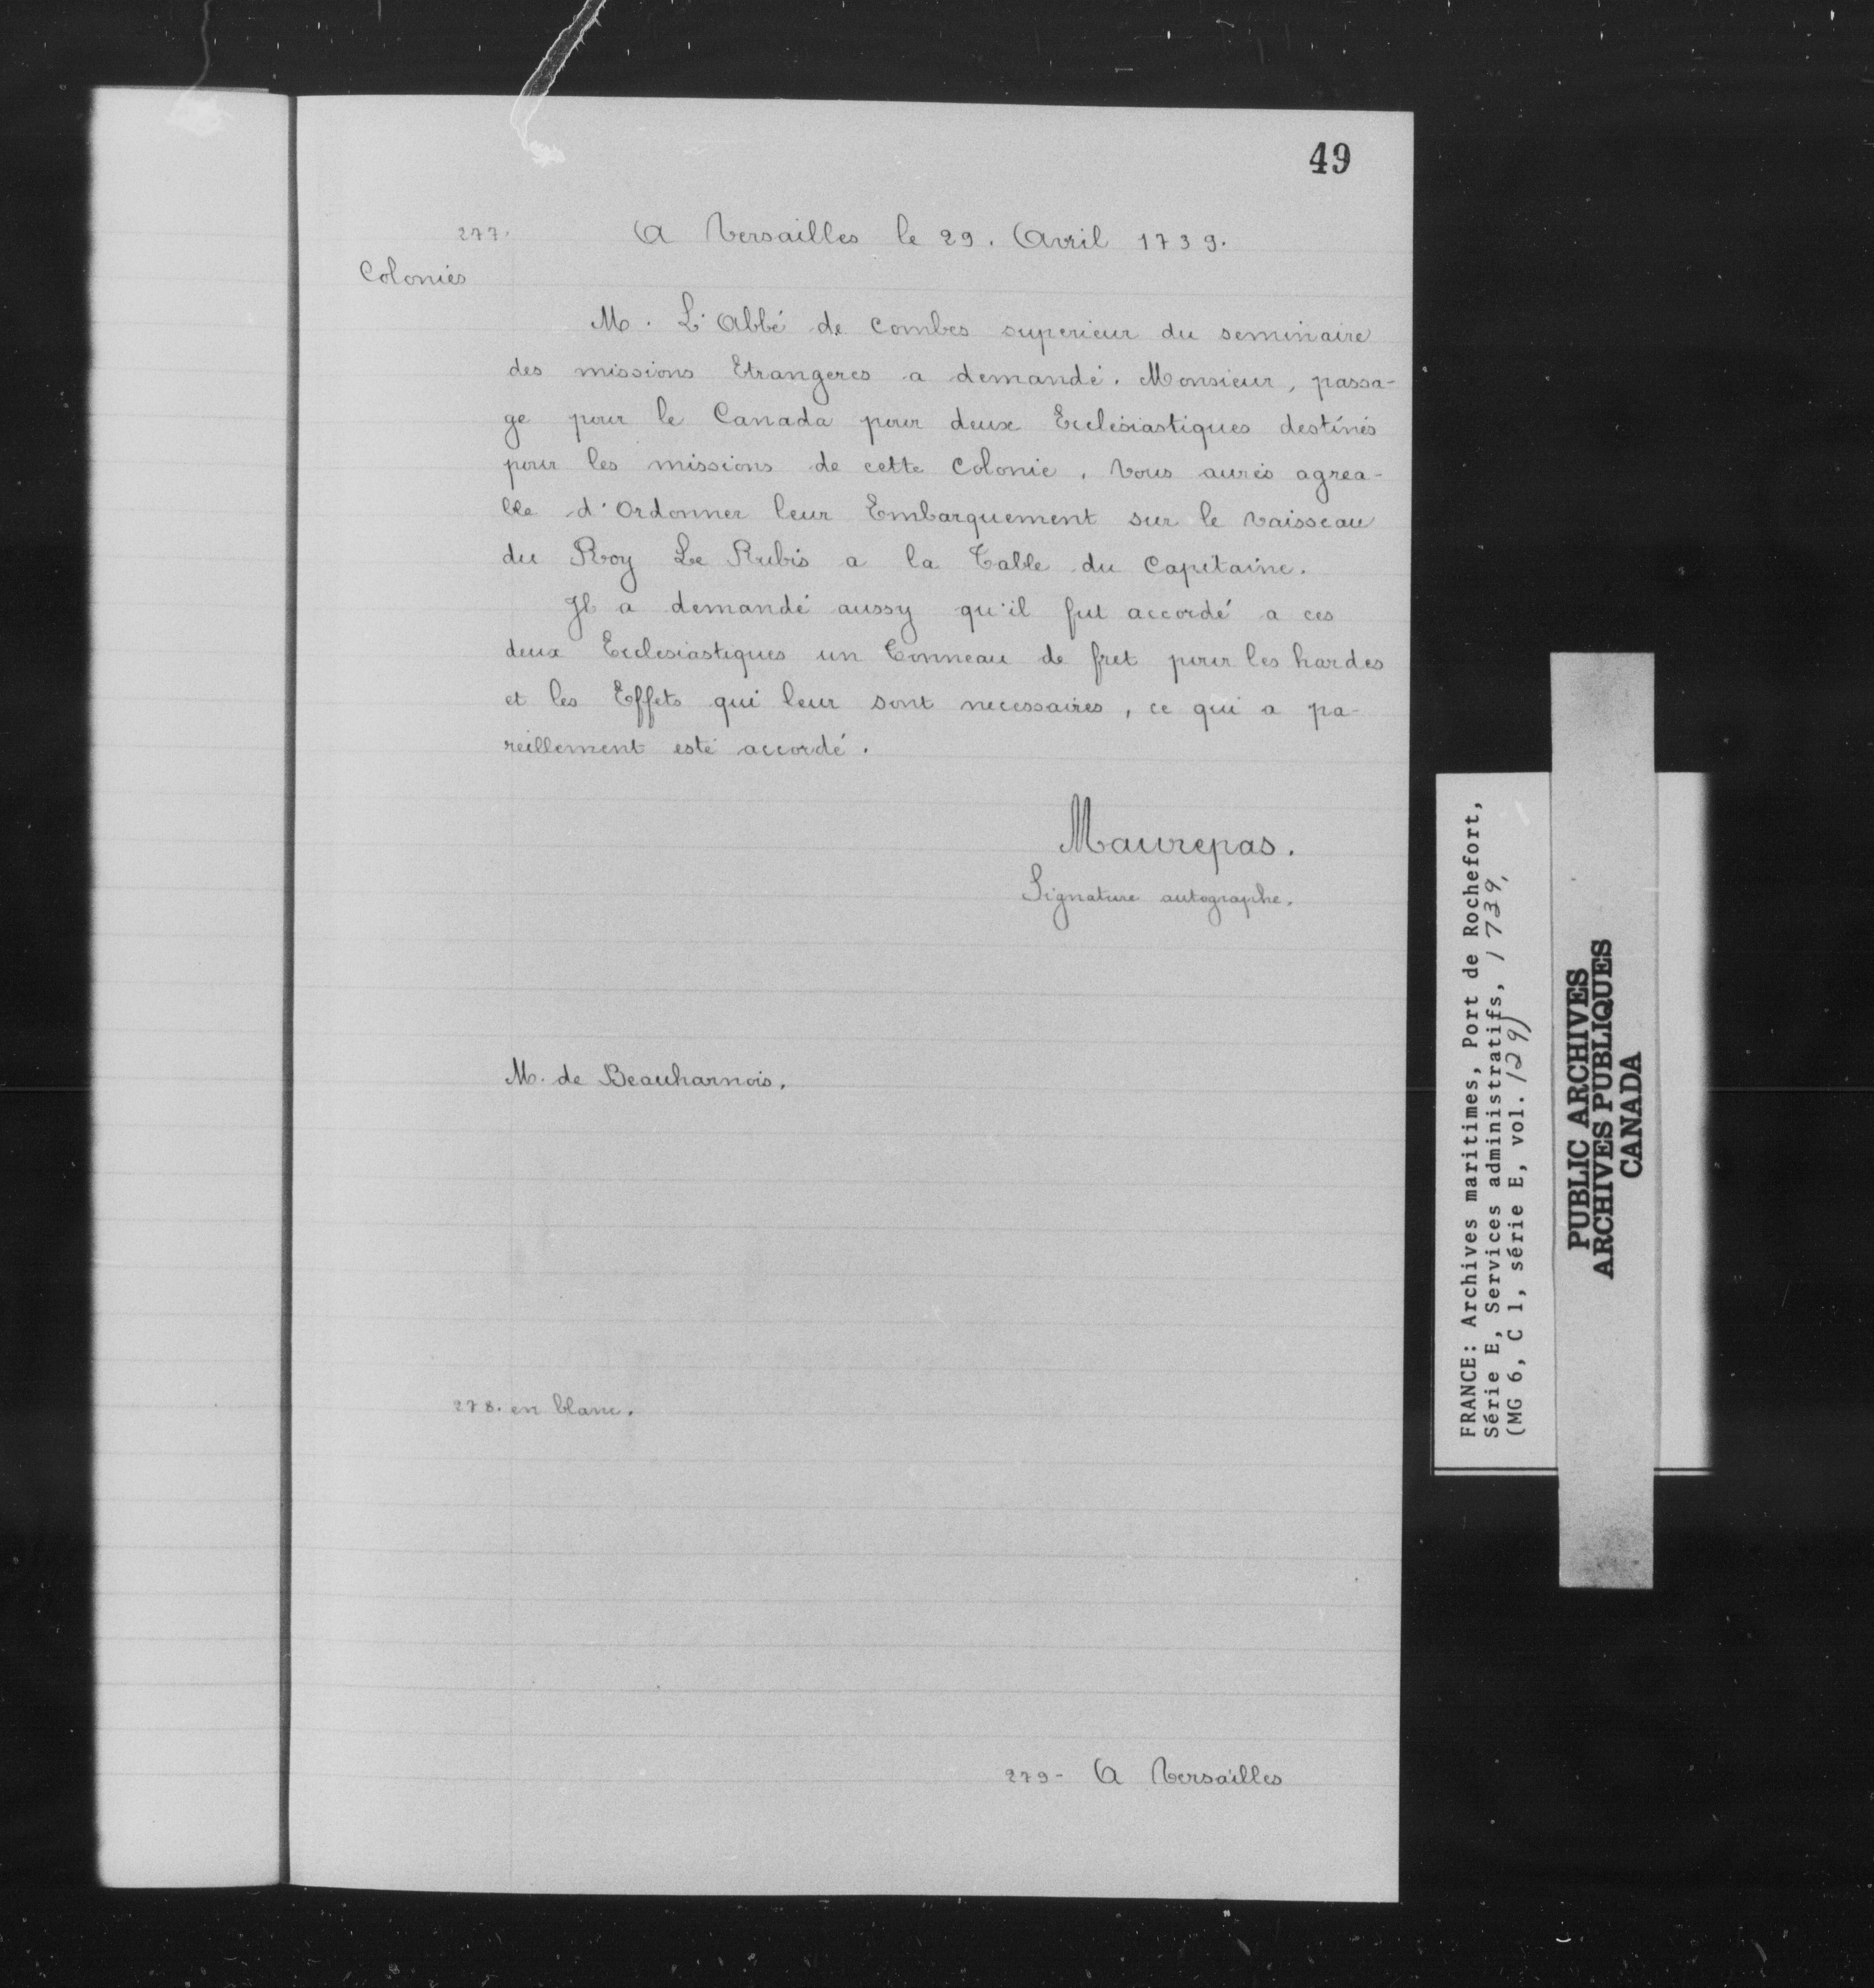 49
277.
A Versailles le 29. Avril 1739.
Colonies
M. L'Abbé de Combes superieur du seminaire
des missions Etrangeres a demandé. Monsieur, passa-
ge pour le Canada pour deux Ecclésiastiques destinés
pour les missions de cette Colonie. Vous aurés agrea-
ble d'Ordonner leur Embarquement sur le Vaisseau
du Roy Le Rubis a la Table du Capitaine.
Il a demandé aussy qu'il fut accordé a ces
deux Ecclesiastiques un Tonneau de fret pour les hardes
et les Effets qui leur sont necessaires, ce qui a pa-
reillement esté accordé.
Maurepas.
Signature autographe.
M. de Beauharnois.
278. en blanc.
279 - A Versailles
FRANCE: Archives maritimes, Port de Rochefort,
Série E, Services administratifs, 1739,
(MG 6, C 1, série E, vol. 129)
PUBLIC ARCHIVES
ARCHIVES PUBLIQUES
CANADA